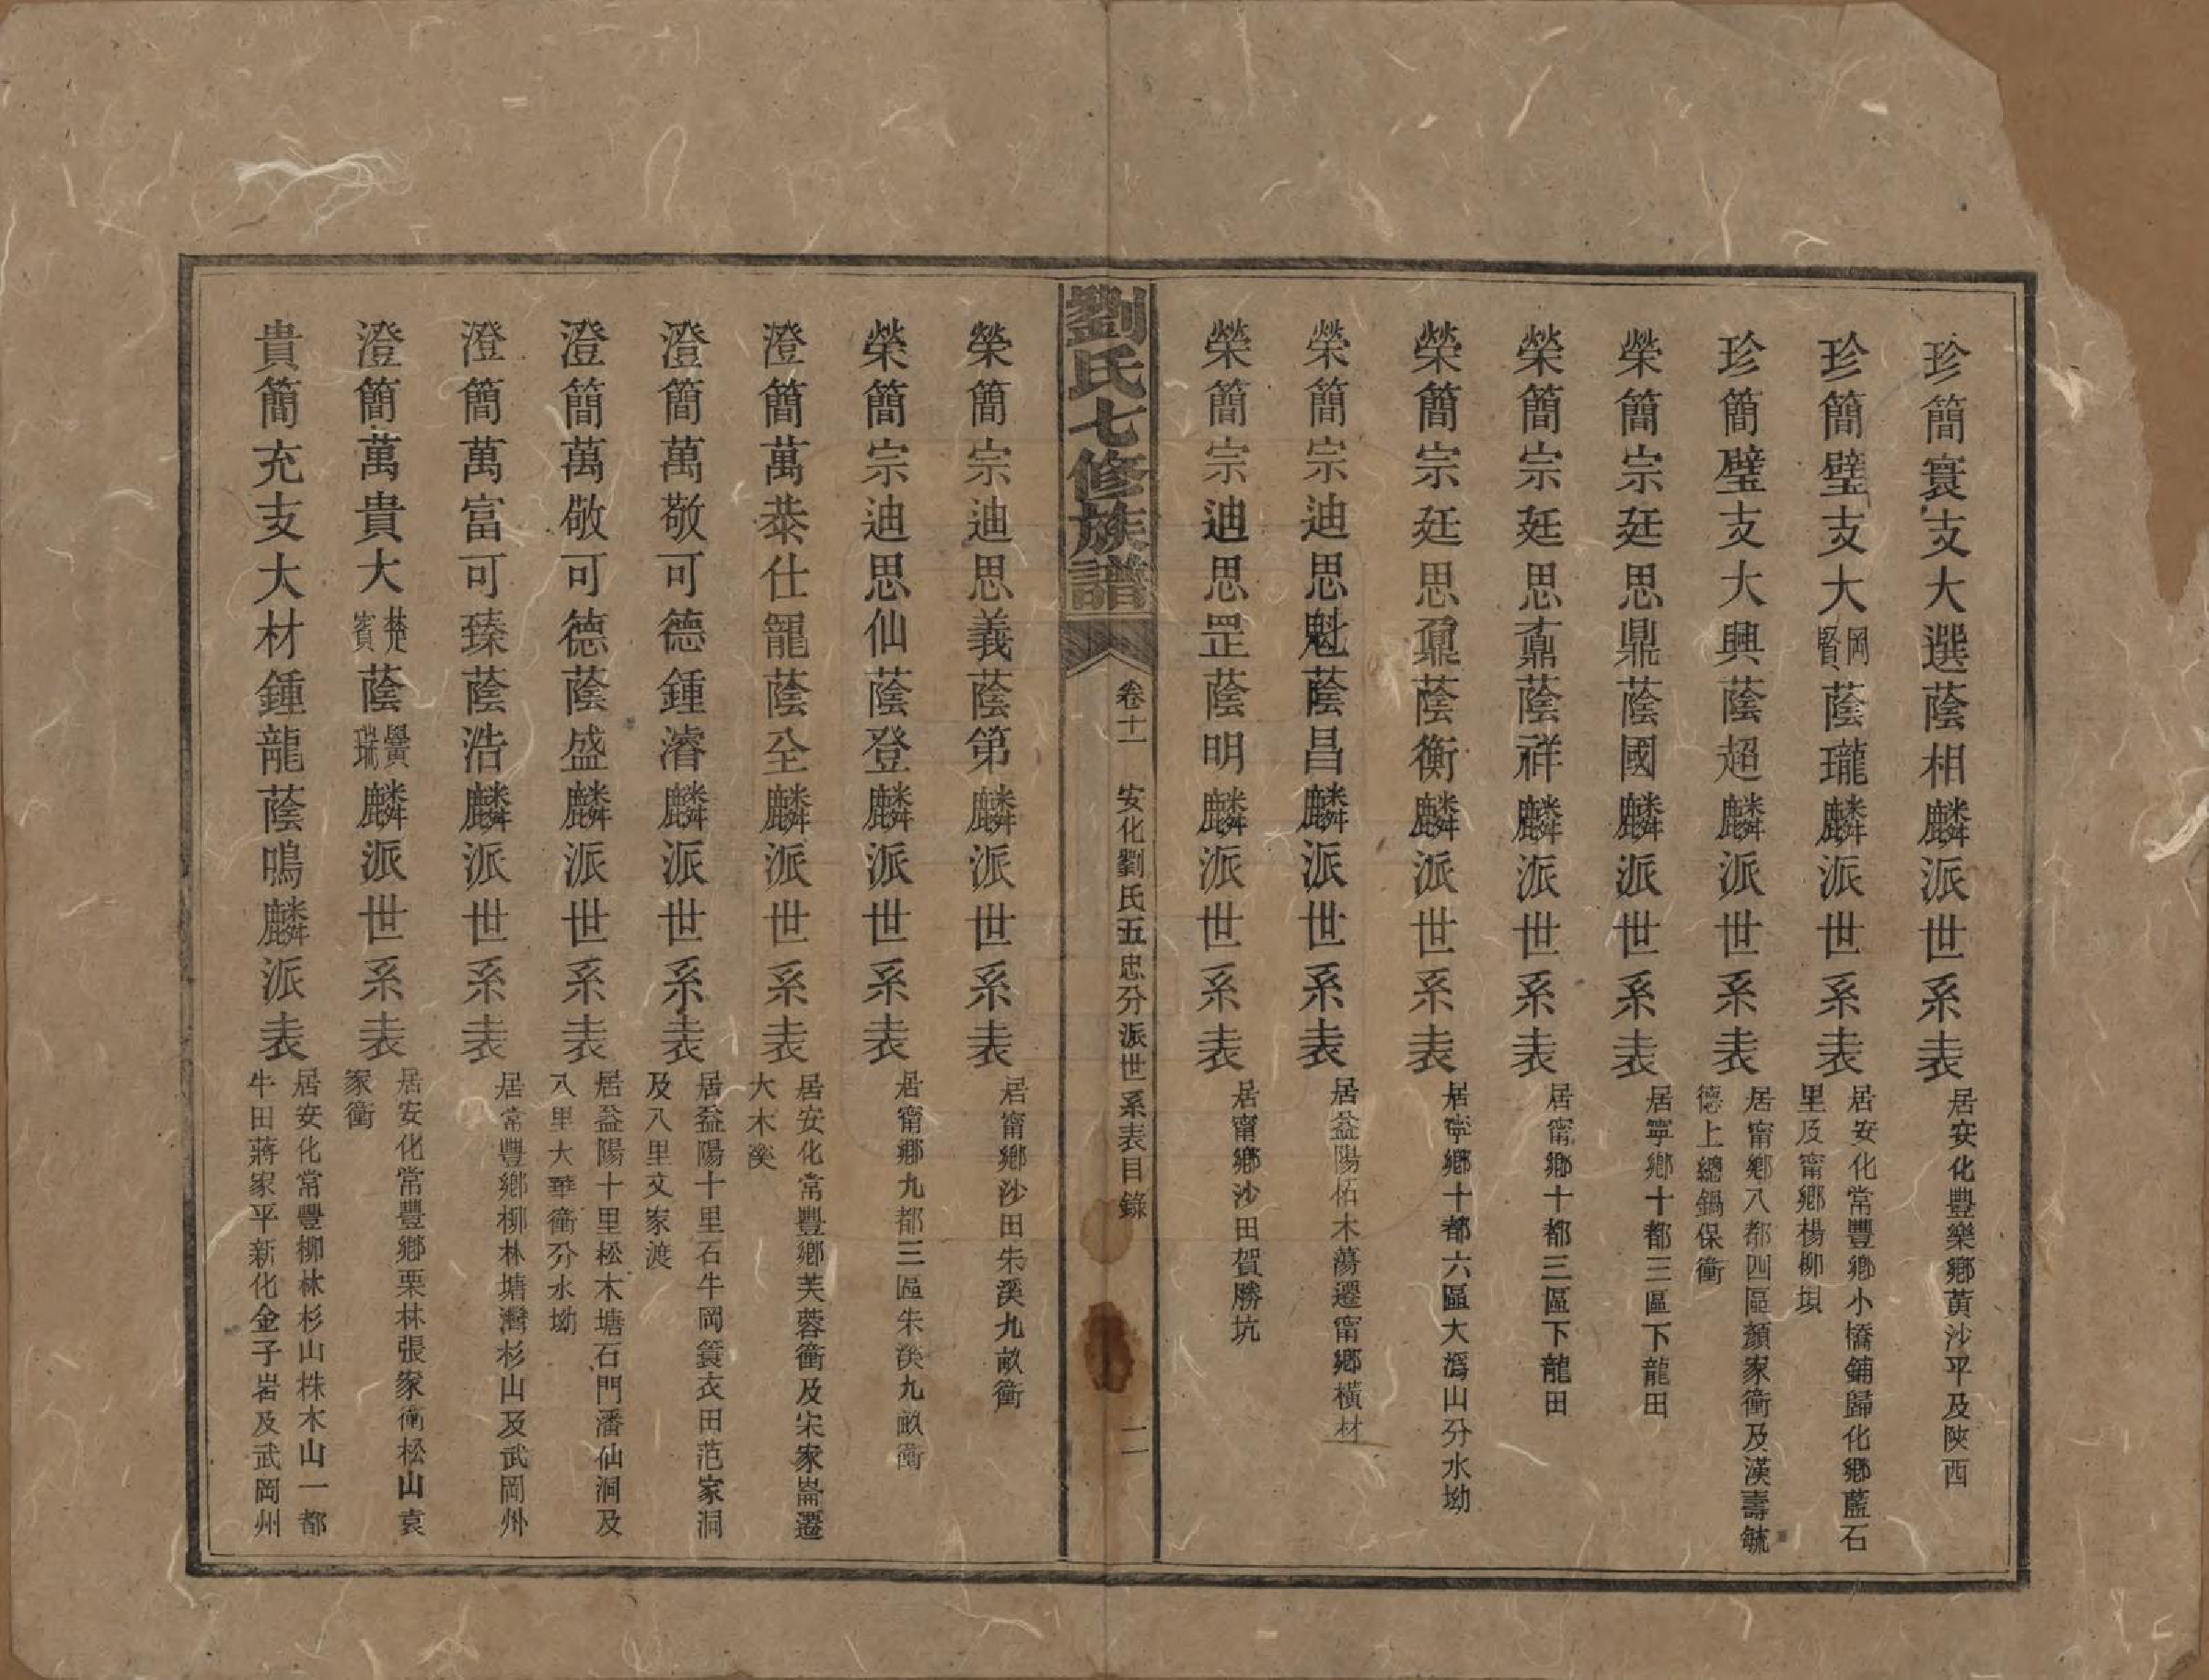 珍簡寰支大選蔭相麟派世系表居安化豐樂鄉黃沙平及陝西
珍簡璧支大岡賢蔭瓏麟派世系表居安化常豐鄉小橋鋪歸化鄉藍石里及甯鄉楊柳垻
珍簡璧支大興蔭超麟派世系表居甯鄉八都四區顏家衝及漢壽毓德上總鍋保衝
榮簡宗廷思鼎蔭國麟派世系表居寧鄉十都三區下龍田
榮簡宗廷思鼒蔭祥麟派世系表居甯鄉十都三區下龍田
榮簡宗廷思鼐蔭衡麟派世系表居寧鄉十都六區大溈山分水坳
榮簡宗迪思魁蔭昌麟派世系表居益陽柘木蕩遷甯鄉橫材
榮簡宗迪思罡蔭明麟派世系表居甯鄉沙田賀勝坑
劉氏七修族譜 卷十一 安化劉氏五忠分派世系表目錄 二
榮簡宗迪思義蔭第麟派世系表居甯鄉沙田朱溪九畝衝
榮簡宗迪思仙蔭登麟派世系表居甯鄉九都三區朱溪九畝衝
澄簡萬恭仕寵蔭全麟派世系表居安化常豐鄉芙蓉衝及宋家崙遷大木溪
澄簡萬敬可德鍾濬麟派世系表居益陽十里石牛岡簑衣田范家洞及八里文家渡
澄簡萬敬可德蔭盛麟派世系表居益陽十里松木塘石門潘仙洞及八里大華衝分水坳
澄簡萬富可臻蔭浩麟派世系表居常豐鄉柳林塘灣杉山及武岡州
澄簡萬貴大楚賓蔭黌瑞麟派世系表居安化常豐鄉栗林張家衝松山袁家衝
貴簡充支大材鍾龍蔭鳴麟派表居安化常豐柳林杉山株木山一都牛田蔣家平新化金子岩及武岡州